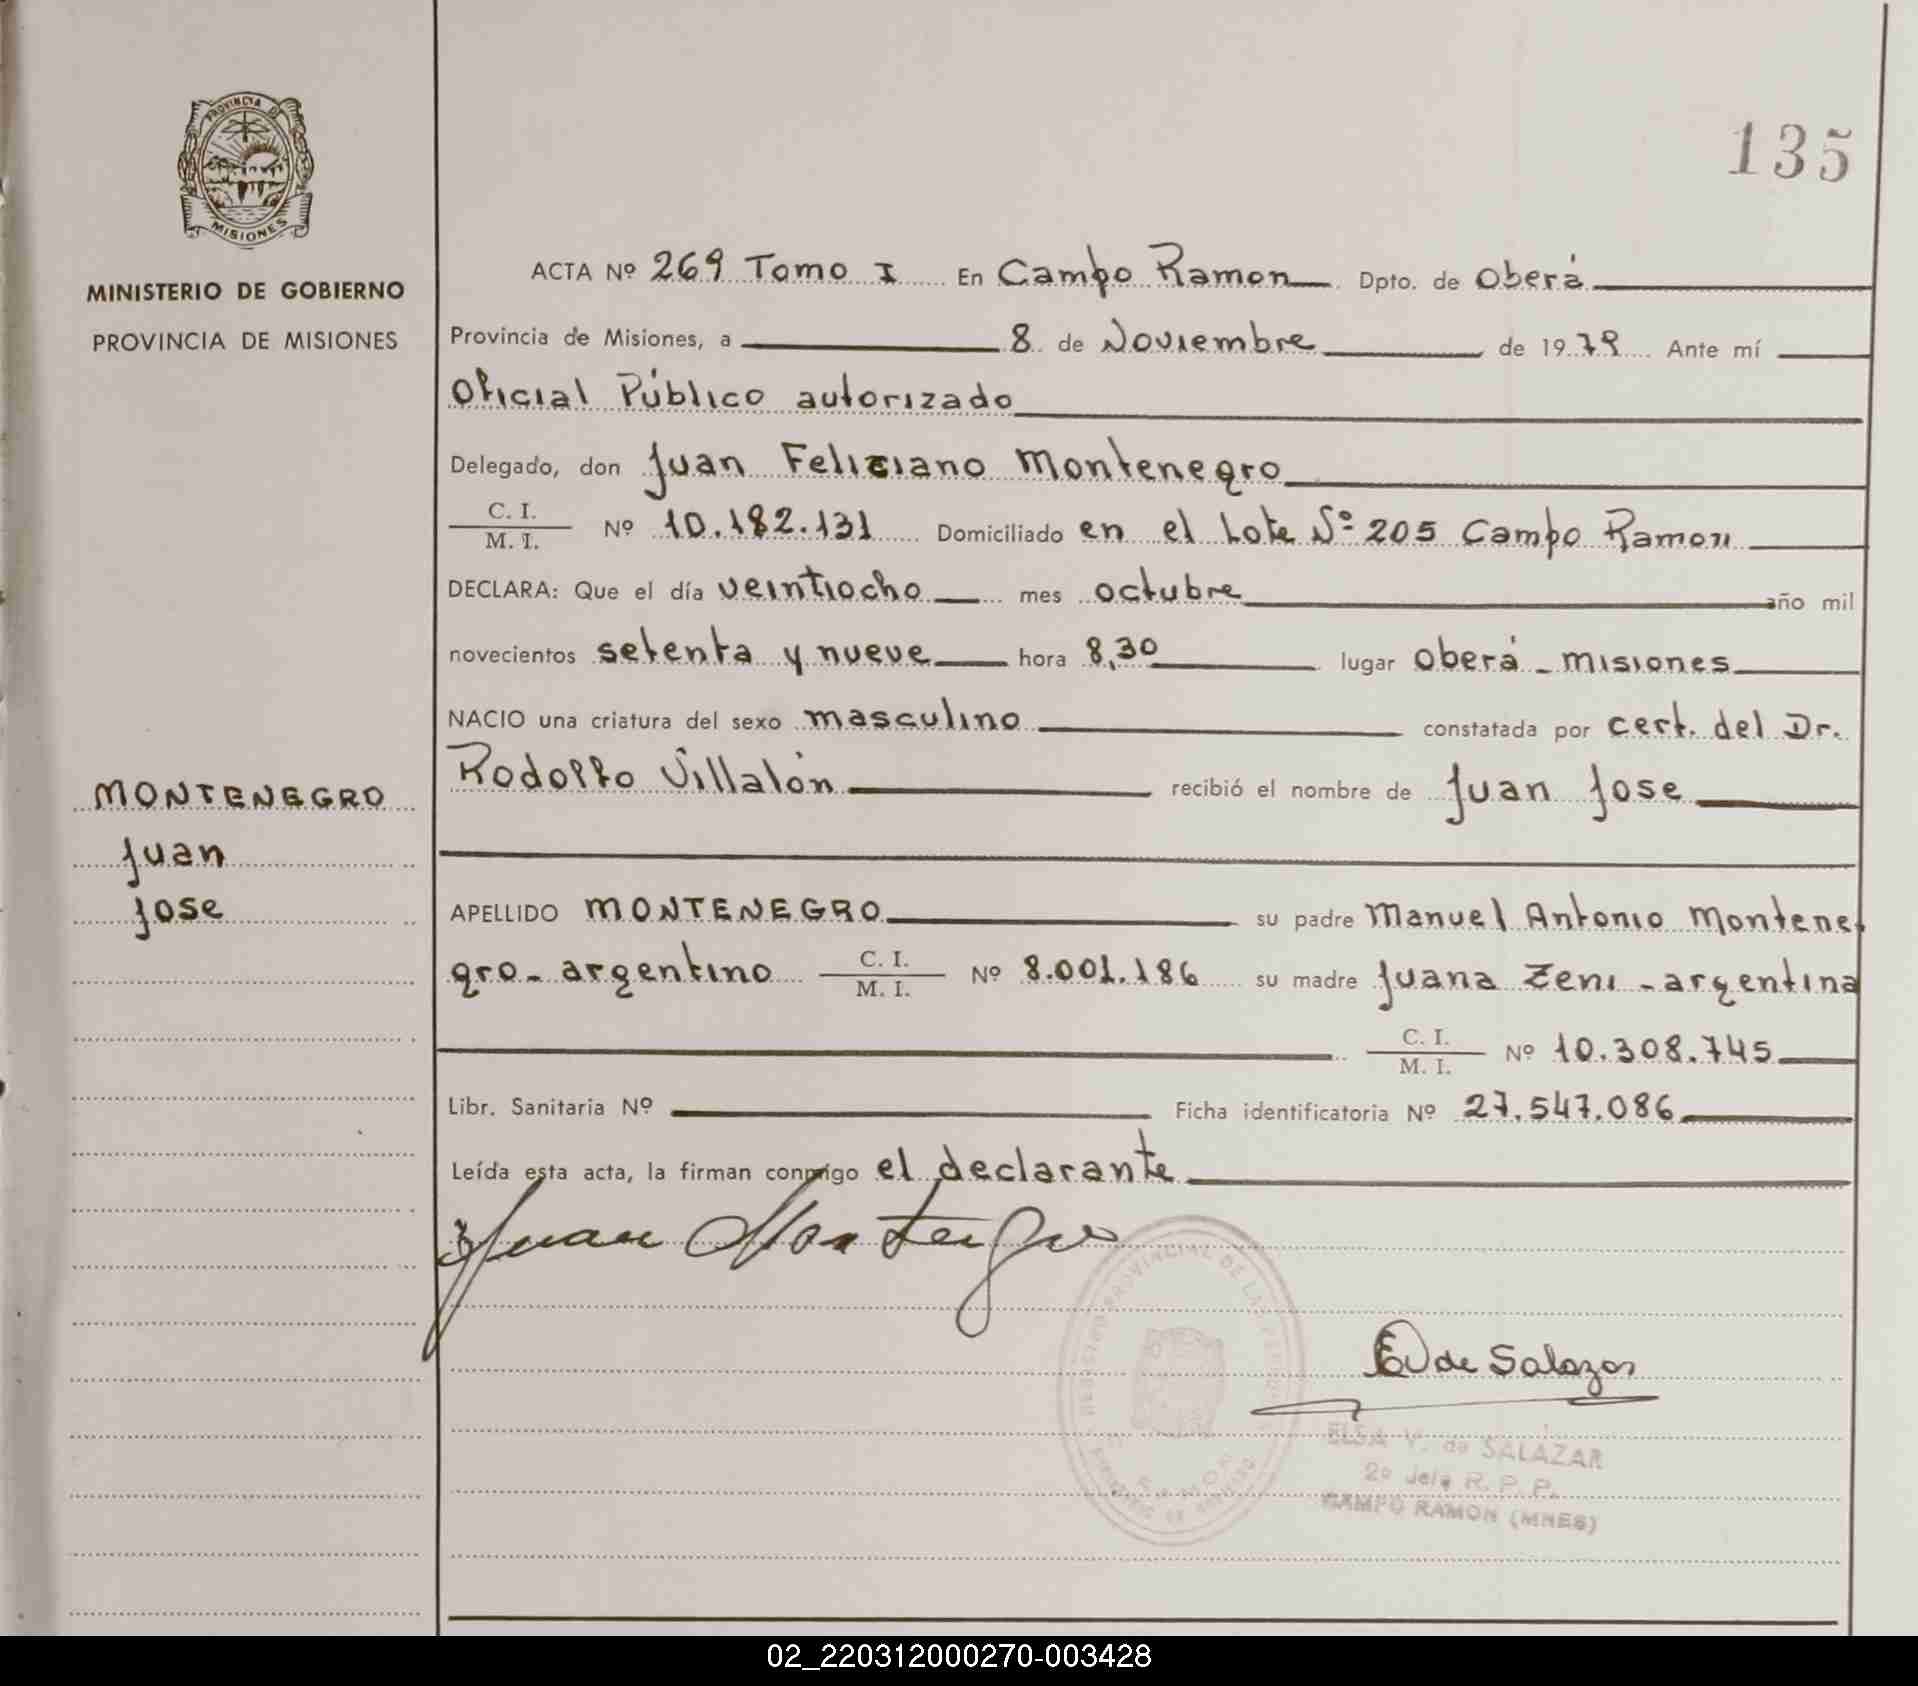 PROVINCIA DE
MISIONES
MINISTERIO DE GOBIERNO
PROVINCIA DE MISIONES
135
ACTA Nº 269 Tomo I En Campo Ramon Dpto. de Oberá
Provincia de Misiones, a 8 de Noviembre de 1979 Ante mí
Oficial Público autorizado
Delegado, don Juan Feliciano Montenegro
C. I.
M. I. Nº 10.182.131 Domiciliado en el Lote Nº 205 Campo Ramon
DECLARA: Que el día veintiocho mes octubre año mil
novecientos setenta y nueve hora 8,30 lugar Oberá - Misiones
NACIO una criatura del sexo masculino constatada por cert. del Dr.
Rodolfo Villalón recibió el nombre de Juan Jose
MONTENEGRO
Juan
Jose
APELLIDO MONTENEGRO su padre Manuel Antonio Montene-
gro - argentino C. I.
M. I. Nº 8.001.186 su madre Juana Zeni - argentina
C. I.
M. I. Nº 10.308.745
Libr. Sanitaria Nº Ficha identificatoria Nº 27.547.086
Leída esta acta, la firman conmigo el declarante
Juan Montengro
REGISTRO PROVINCIAL DE LAS
RAMON
E V de Salazar
ELSA V. de SALAZAR
2º Jefe R. P. P.
CAMPO RAMON (MNES)
02_220312000270-003428